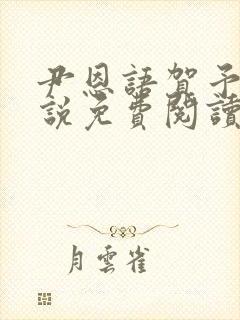 尹恩語賀予
說免費閱讀
月雲雀